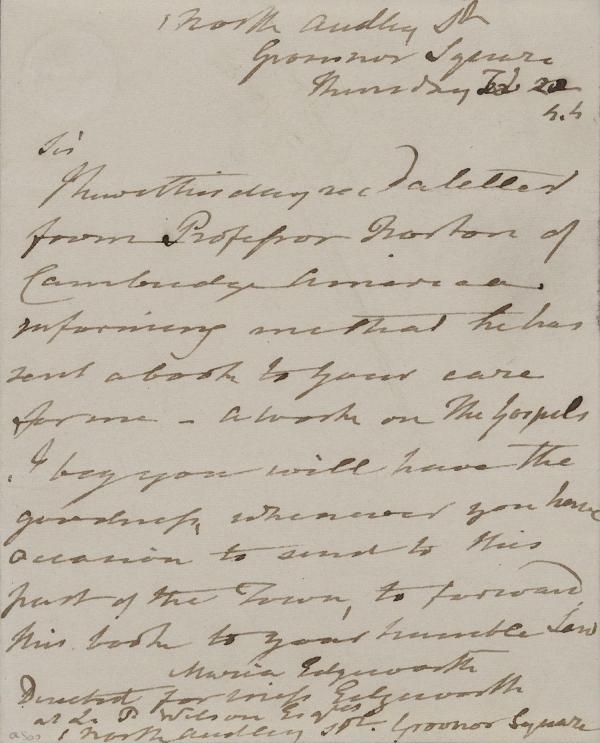 1 North Audley St
Grosvnor Square
Thursday Feb 22
44
Sir
I have this day recd a letter
from Professor Norton of
Cambridge America.
informing me that he has
sent a book to your care
for me - a work on The Gospels
I beg you will have the
goodness, whenever you have
occasion to send to this
part of the Town, to forward
this book to your humble Servt
Maria Edgeworth
Directed for Miss Edgeworth
at L. P. Wilson Esqres
1 North Audley St. Grovnor Square